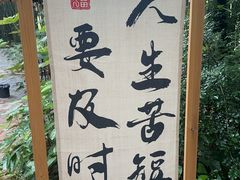 人生苦短
要及时